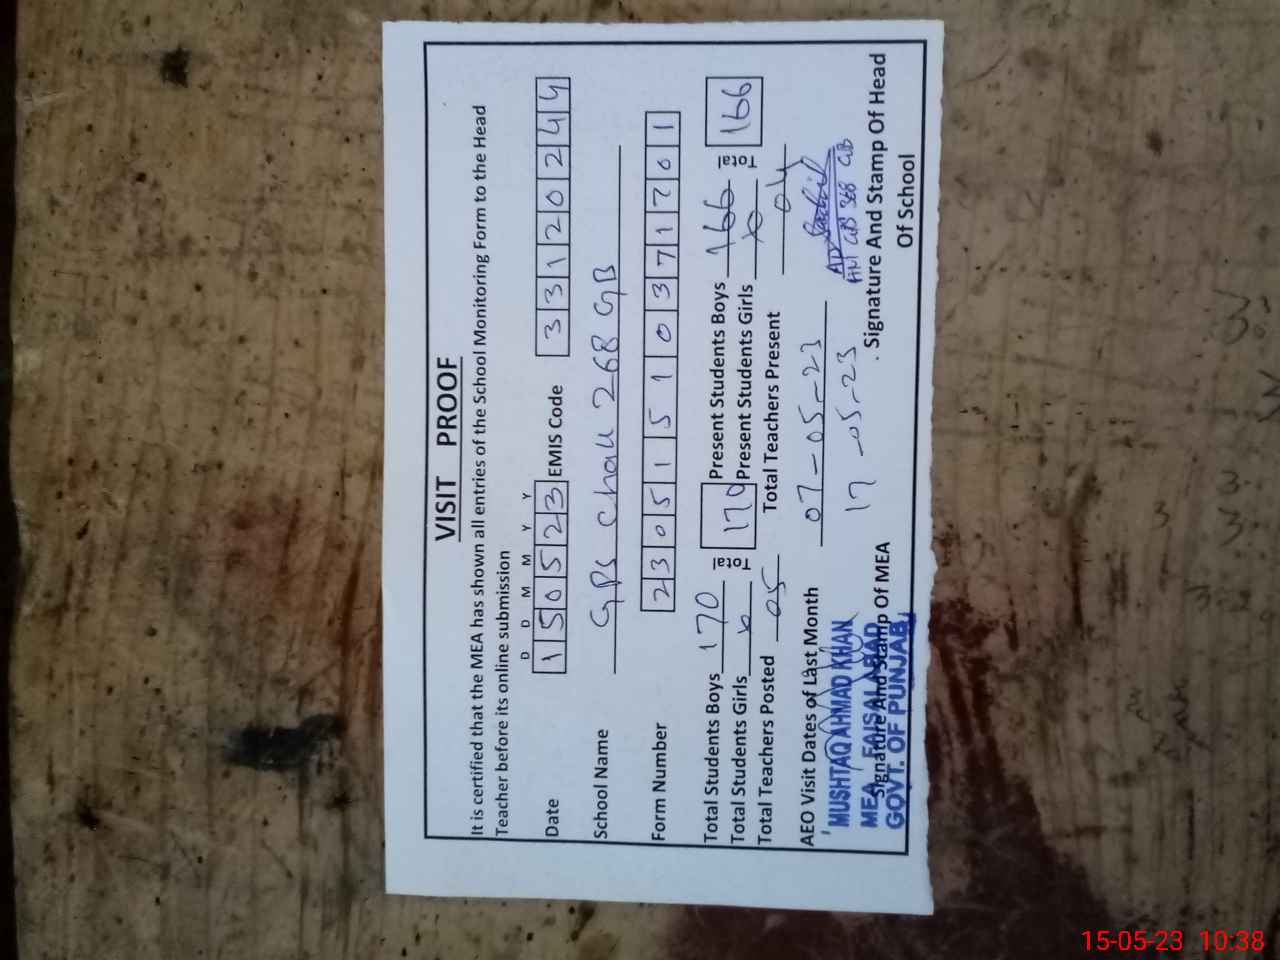 VISIT PROOF
It is certified that the MEA has shown all entries of the School Monitoring Form to the Head
Teacher before its online submission
D D M M Y Y
Date 150523 EMIS Code 33120244
School Name GPS Chak 268 GB
Form Number 230515103717701
Total Students Boys 170 Total 170 Present Students Boys 166 Total 166
Total Students Girls Present Students Girls
Total Teachers Posted 05 Total Teachers Present 04
AEO Visit Dates of Last Month 07-05-23
17-05-23
MUSHTAQ AHMAD KHAN
MEA FAISALABAD
GOVT. OF PUNJAB
Signature And Stamp Of MEA
Signature And Stamp Of Head
Of School
15-05-23 10:38